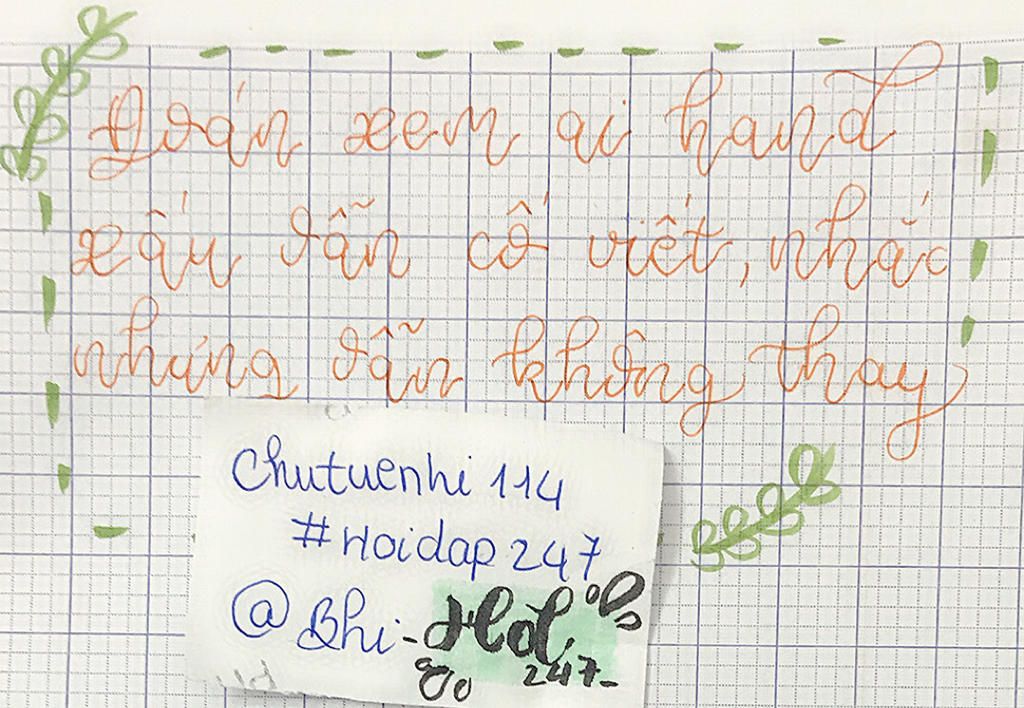 Đoán xem ai hand
xấu vẫn cố viết, nhắc
nhưng vẫn không thay
Chutuenhi 114
#Hoidap247
@Bhi-Hod
247-